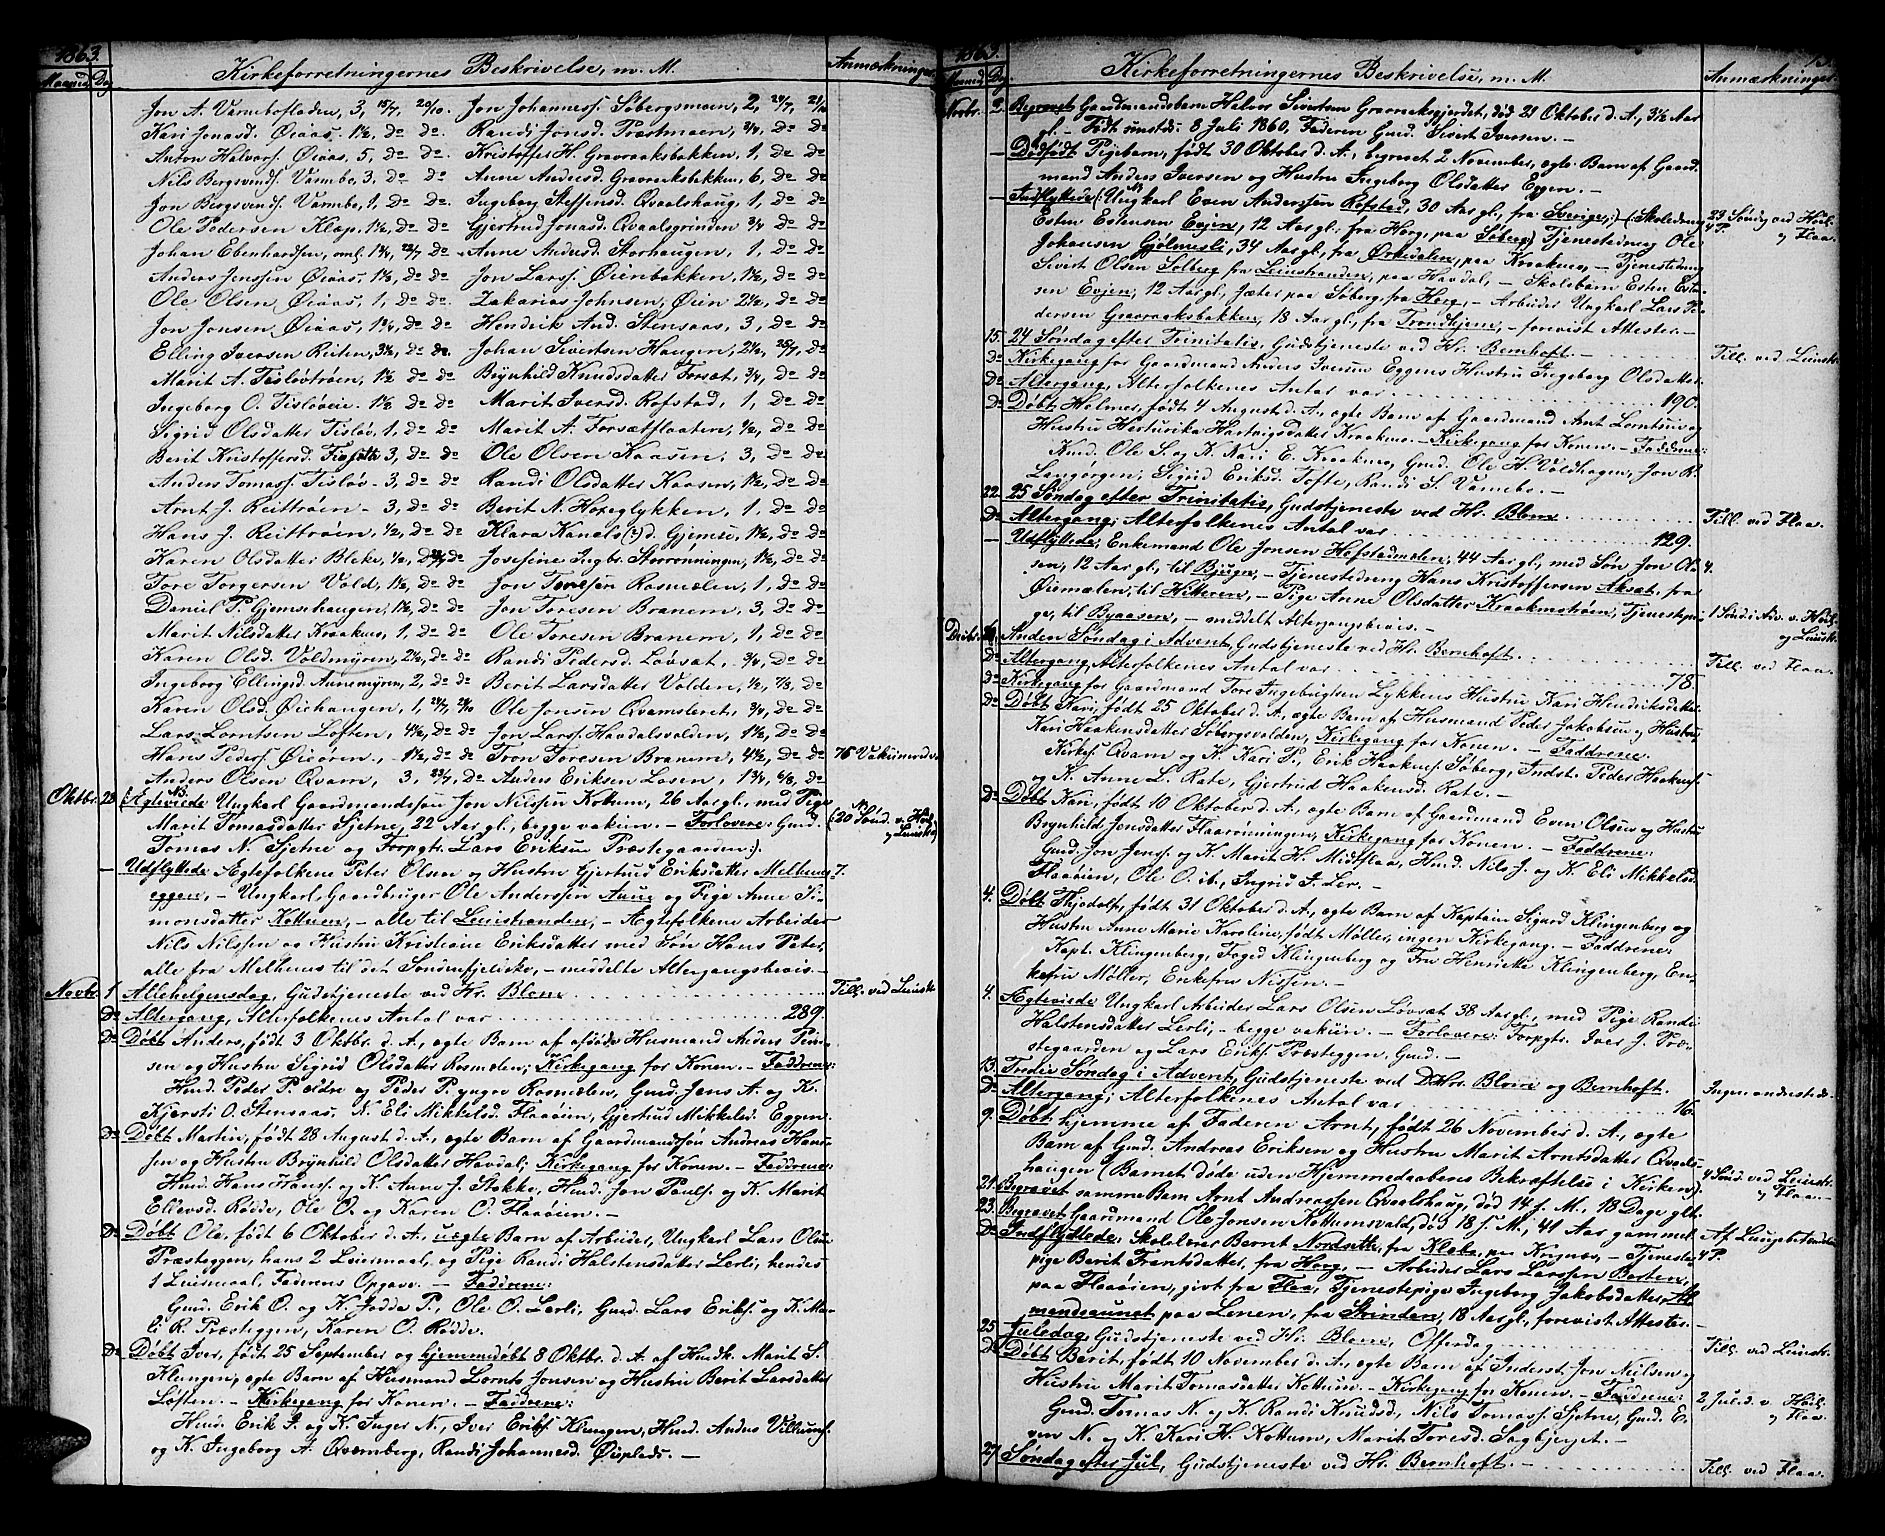 1863.
Maaned Dag
Kirkeforretningernes Beskrivelse, m. M.
Anmærkninger.
Jon A. Varmbofladen, 3, 15/7, 20/10. Jon Johanness. Søbergsmoen, 2, 24/7, 21/10
Kari Jonasd. Øiaas, 1½, Do Do. Randi Jonsd. Præstmoen, ¾, Do Do
Anton Halvors. Øiaas, 5, Do Do. Kristoffer H. Gravraaksbakken, 1, Do Do
Nils Bergsvends. Varmbo, 3, Do Do Anne Andersd. Gravraaksbakken, 6, Do Do
Jon Bergsvends. Varmbo, 1, Do Do. Ingeborg Steffensd. Qvaalshaug, 1, Do Do
Ole Pedersen Kløp, 1½, Do Do Gjertrud Jonasd. Qvaalsgrinden ¾ Do Do
Johan Ebenhardsen, 1¾, 22/7 Do Anne Andersd. Storhaugen, 1, Do Do
Anders Jenssen Øiaas, 1½, Do Do Jon Larss. Øienbakken, 1½, Do Do
Ole Olsen Øiaas, 1, Do Do. Zakarias Johnsen, Øien 2½, Do Do
Jon Jonsen Øiaas, 1¾, Do Do Hendrik And. Stensaas, 3, Do Do
Elling Iversen Reiten, 3½, Do Do. Johan Sivertsen Haugen, 2½, 25/7, Do
Marit A. Tisløvtrøen, 1½ Do Do Brynhild Knudsdatter Forsæt, ¾, Do Do
Ingeborg O. Tisløvie. 1½ Do Do Marit Iversd. Rofstad, 1, Do Do
Sigrid Olsdatter Tisløv, 1, Do Do Marit A. Forsætflaaten, ½, Do Do
Berit Kristoffersd. 3, Do Do Ole Olsen Kaasen, 3, Do Do
Anders Tomass. Tisløv - 3, Do Do Randi Olsdatter Kaasen, 1½, Do Do
Arnt J. Reittrøen - 3, Do Do Berit N. Hopeglykken, 1, Do Do
Hans J. Reittrøen, ½, Do Do Klara Kanels (?)d. Gjemse, 1½, Do Do
Karen Olsdatter Bleke, ½, 23/7, Do Josefine Ingbr. Storrønningen, 1½, Do Do
Tore Torgersen Vold, 1½, Do Do Jon Toresen Rosmælen, 1, Do Do
Daniel P. Gjemsehaugen, 1½, Do Do Jon Toresen Branem, 3, Do Do
Marit Nilsdatter Kraakmo, 1, Do Do Ole Toresen Branem, 1, Do Do
Karen Olsd. Voldmyren, 2½, Do Do Randi Pedersd. Løvsæt, ¾, Do Do
Ingeborg Ellingsd. Aunemyren, 2, Do Do Berit Larsdatter Volden, ½, 7/8, Do
Karen Olsd. Øiehaugen, 1, 24/7, 20/10 Ole Jonsen Qvamsteret, ¾, Do Do
Lars Lorntsen Løften, 4½, Do Do Jon Larss. Havdalsvolden, 1½, Do Do
Hans Peders. Øiøren., 1½, Do Do Tron Toresen Branem, 4½, Do Do 76 Vakcinerede
Anders Olsen Qvam, 3, 23/7, Do Anders Eriksen Losen, 1¾, 6/8, Do
Oktbr. 28 (NB. Ægteviede Ungkarl Gaardmandssøn Jon Nilssen Kottum, 26 Aar gl., med Pige (20 Sønd. v. Hoil.
Marit Tomasdatter Sjetne, 22 Aar gl., begge vakcin. - Forlovere: Gmd. og Leinstr.)
Tomas N. Sjetne og Forpgtr. Lars Eriksen Præstegaarden:).
- Udflyttede Ægtefolkene Peter Olsen og Hustru Gjertrud Eriksdatter Melhus- 7.
eggen, - Ungkarl, Gaardbruger Ole Andersen Aune og Pige Anne Si-
monsdatter Kottum, - alle til Leinstranden, - Ægtefolkene Arbeider
Nils Nilssen og Hustru Kristiane Eriksdatter med Søn Hans Peter,
alle fra Melhus til det Søndenfjelske, - meddelte Altergangsbevis. -
Novbr. 1 Allehelgensdag, Gudstjeneste ved Hr. Blom Till. ved Leinstr.
Do Altergang, Alterfolkenes Antal var 289.
Do Døbt Anders, født 3 Oktbr. d. A., ægte Barn af afdøde Husmand Anders Peter-
sen og Hustru Sigrid Olsdatter Rosmælen; Kirkegang for Konen. - Faddrene:
Hmd. Peder P. ældre og Peder P. yngre Rosmælen, Gmd. Jens A. og K.
Kjersti O. Stensaas, K. Eli Mikkelsd. Flaaøien, Gjertrud Mikkelsd. Eggen.
Do Døbt Martin, født 28 August d. A., ægte Barn af Gaardmandssøn Andreas Han-
sen og Hustru Brynhild Olsdatter Havdal; Kirkegang for Konen. - Faddrene:
Hmd. Hans Hanss. og K. Anne J. Stokke, Hmd. Jon Pauls. og K. Marit
Ellevsd. Rødde, Ole O. og Karen O. Flaaøien. -
Do Døbt Ole, født 6 Oktober d. A., uægte Barn af Arbeider, Ungkarl Lars Olsen
Præsteggen, hans 2 Leiermaal, og Pige Randi Halstensdatter Lerli, hendes
1 Leiermaal, Faderens Opgave. - Faddrene:
Gmd. Erik O. og K. Jodda P., Ole O. Lerli, Gmd. Lars Eriks. og K. Ma-
li R. Præsteggen, Karen O. Rødde.
Do Døbt Iver, født 25 September og hjemmedøbt 8 Oktbr. d. A. af Husk. Marit S.
Klungen, ægte Barn af Husmand Lornts Jonsen og Hustru Berit Larsdatter
Løften. - Kirkegang for Konen. - Faddrene:
Hmd. Erik I. og K. Inger N., Iver Eriks. Klungen, Hmd. Anders Villums.
og K. Ingeborg A. Qvernberg, Randi Johannesd. Øxplads. -
1863.
Maaned Dag.
Kirkeforretningernes Beskrivelse, m. M.
Anmærkninger.
Novbr. 2. Begravet Gaardmandsbarn Halvor Sivertsen Gravraaksgjerdet, død 21 Oktober d. A., 3½ Aar
gl. - Født 8 Juli 1860, Faderen Gmd. Sivert Iversen. -
- Dødfødt Pigebarn, født 30 Oktober d. A., begravet 2 November, ægte Barn af Gaard-
mand Anders Iversen og Hustru Ingeborg Olsdatter Eggen. -
- Indflyttede (Ungkarl Even Anderssøn Rofstad, 30 Aar gl., fra Sverige,:) (Skoledreng 23 Sønd. ved Hoil.
Esten Estensen Evjen, 12 Aar gl. fra Horg, paa Søberg) Tjenestedreng Ole 4 P. og Flaa.
Johansen Gjølmesli, 34 Aar gl., fra Ørkedalen, paa Kraakmo, - Tjenestedreng
Sivert Olsen Solberg fra Leinstranden, paa Havdal, - Skolebarn Esten Esten-
sen Evjen, 12 Aar gl., Jæter paa Søberg, fra Horg, - Arbeider Ungkarl Lars Pe-
dersen Gravraaksbakken, 18 Aar gl., fra Trondhjem, - forevist Attester. -
15. 24 Søndag efter Trinitatis, Gudstjeneste ved Hr. Bernhoft. - Till. ved Leinstr.
Do Kirkegang for Gaardmand Anders Iversen Eggens Hustru Ingeborg Olsdatter.
Do Altergang, Alterfolkenes Antal var 190.
Do Døbt Helmer, født 4 August d. A., ægte Barn af Gaardmand Arnt Lorntsen og
Hustru Herturika Hartvigsdatter Kraakmo. - Kirkegang for Konen. - Faddrene:
Hmd. Ole S. og K. Kari E. Kraakmo, Gmd. Ole H. Voldhagen, Jon R.
Langørgen, Sigrid Eriksd. Tofte, Randi S. Varmbo. -
22. 25 Søndag efter Trinitatis, Gudstjeneste ved Hr. Blom Till. ved Flaa.
Do Altergang; Alterfolkenes Antal var 129.
- Udflyttede; Enkemand Ole Jonsen Hofstadmælen, 44 Aar gl., med Søn Jon Ol- 4.
sen, 12 Aar gl., til Bjugn, - Tjenestedreng Hans Kristoffersen Aksæt, fra
Øiemælen, til Hitteren, - Pige Anne Olsdatter Kraakmotrøen, Tjenestepi- 1 Sønd. i Adv. v. Hoil.
ge, til Byaasen, - meddelt Altergangsbevis. - og Leinstr.
Decbr. 6. Anden Søndag i Advent, Gudstjeneste ved Hr. Bernhoft. Till. ved Flaa.
Do Altergang, Alterfolkenes Antal var 78.
Do Kirkegang for Gaardmand Tore Ingebrigtsen Lykkens Hustru Kari Hendriksdatter.
Do Døbt Kari, født 25 Oktober d. A., ægte Barn af Husmand Peder Jakobsen og Hustru
Kari Haakensdatter Søbergsvolden, Kirkegang for Konen. - Faddrene:
Kirkes. Qvam og K. Kari P., Erik Haakens. Søberg, Indst. Peder Haakens.
og K. Anne L. Rate, Gjertrud Haakensd. Rate. -
Do Døbt Kari, født 10 Oktober d. A., ægte Barn af Gaardmand Even Olsen og Hustru
Brynhild Jonsdatter Flaarønningen, Kirkegang for Konen. - Faddrene:
Gmd. Jon Jens. og K. Marit H. Midtflaa, Hmd. Nils J. og K. Eli Mikkelsd.
Flaaøien, Ole O. ib., Ingrid J. Ler. -
4. Døbt Thjodolf, født 31 Oktober d. A., ægte Barn af Kaptain Sigurd Klingenberg og
Hustru Anne Marie Karoline, født Møller, ingen Kirkegang. - Faddrene:
Kapt. Klingenberg, Foged Klingenberg og Fru Henriette Klingenberg, En-
kefru Møller, Enkefru Nissen. -
4. Ægteviede Ungkarl Arbeider Lars Olsen Løvsæt 38 Aar gl., med Pige Randi
Halstensdatter Lerli, - begge vakcin. - Forlovere: Forpgtr. Iver J. Præ-
stegaarden og Lars Eriks. Præsteggen, Gmd. -
13. Tredie Søndag i Advent, Gudstjeneste ved DHrr. Blom og Bernhoft. Ingen andensteds.
Do Altergang; Alterfolkenes Antal var 16.
9. Døbt hjemme af Faderen Arnt, født 26 November d. A., ægte
Barn af Gmd. Andreas Eriksen og Hustru Marit Arntsdatter Qvaals-
haugen (Barnet døde uden Hjemmedaabens Bekræftelse i Kirken). 4 Sønd. ved Leinstr.
21. Begravet samme Barn Arnt Andreassen Qvaalshaug, død 14 f. M., 18 Dage glt. og Flaa. -
23. Begravet Gaardmand Ole Jonsen Kottumsvald, død 18 f. M., 41 Aar gammel.
Do Indflyttede, Skolelærer Bernt Nordsetth, fra Klæbo, paa Krignes, - Tjeneste- Af
pige Berit Frantsdatter, fra Horg, - Arbeider Lars Larssen Borten, 4 P.
paa Flaaøien, givt fra Flaa, Tjenestepige Ingeborg Jakobsdatter Al-
mendsaunet paa Lenem, fra Strinden, 18 Aar gl., forevist Attester. -
25. Juledag Gudstjeneste ved Hr. Blom, Offerdag Till. ved Leinstr.
Do Døbt Berit, født 10 November d. A., ægte Barn af Inderst Jon Nielsen og
Hustru Marit Tomasdatter Kottum. - Kirkegang for Konen. - Faddrene: 2 Juled. v. Hoil.
Gmd. Tomas N. og K. Randi Knudsd., Nils Tomass. Sjetne, Gmd. E- og Flaa.
ven N. og K. Kari H. Kottum, Marit Toresd. Sagbjerget. -
27 Søndag efter Jul, Gudstjeneste ved Hr. Bernhoft. - Till. ved Flaa.